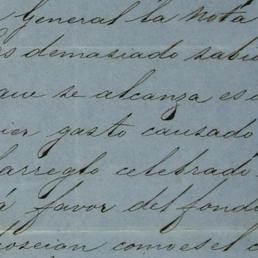 General la nota
es demasiado sabi
que se alcanza es a
ier gasto causado
arreglo celebrado
á favor del fond
como es el c